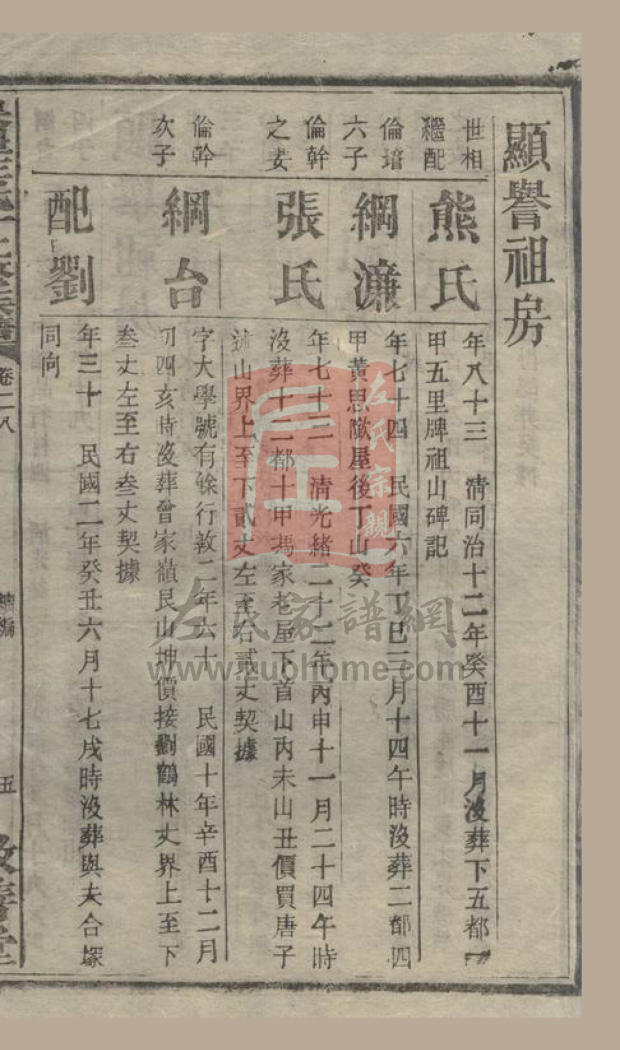 顯譽祖房
世相
繼配
熊氏
年八十三 清同治十二年癸酉十一月沒葬下五都
甲五里牌祖山碑記
倫培
六子
綱濂
年七十四 民國六年丁巳三月十四午時沒葬二都四
甲黃思歐屋後丁山癸
倫幹
之妻
張氏
年七十二 清光緒二十二年丙申十一月二十四午時
沒葬十二都十甲馮家老屋下首山內未山丑價買唐子
山界上至下貳丈左至右貳丈契據
倫幹
次子
綱台
字大學號有餘行敦二年六十 民國十年辛酉十二月
初四亥時沒葬曾家嶺艮山坤價接劉鶴林丈界上至下
叁丈左至右叁丈契據
配劉
年三十 民國二年癸丑六月十七戌時沒葬與夫合塚
同向
卷二八
五
左氏宗親
左氏家譜網
www.zuohome.com